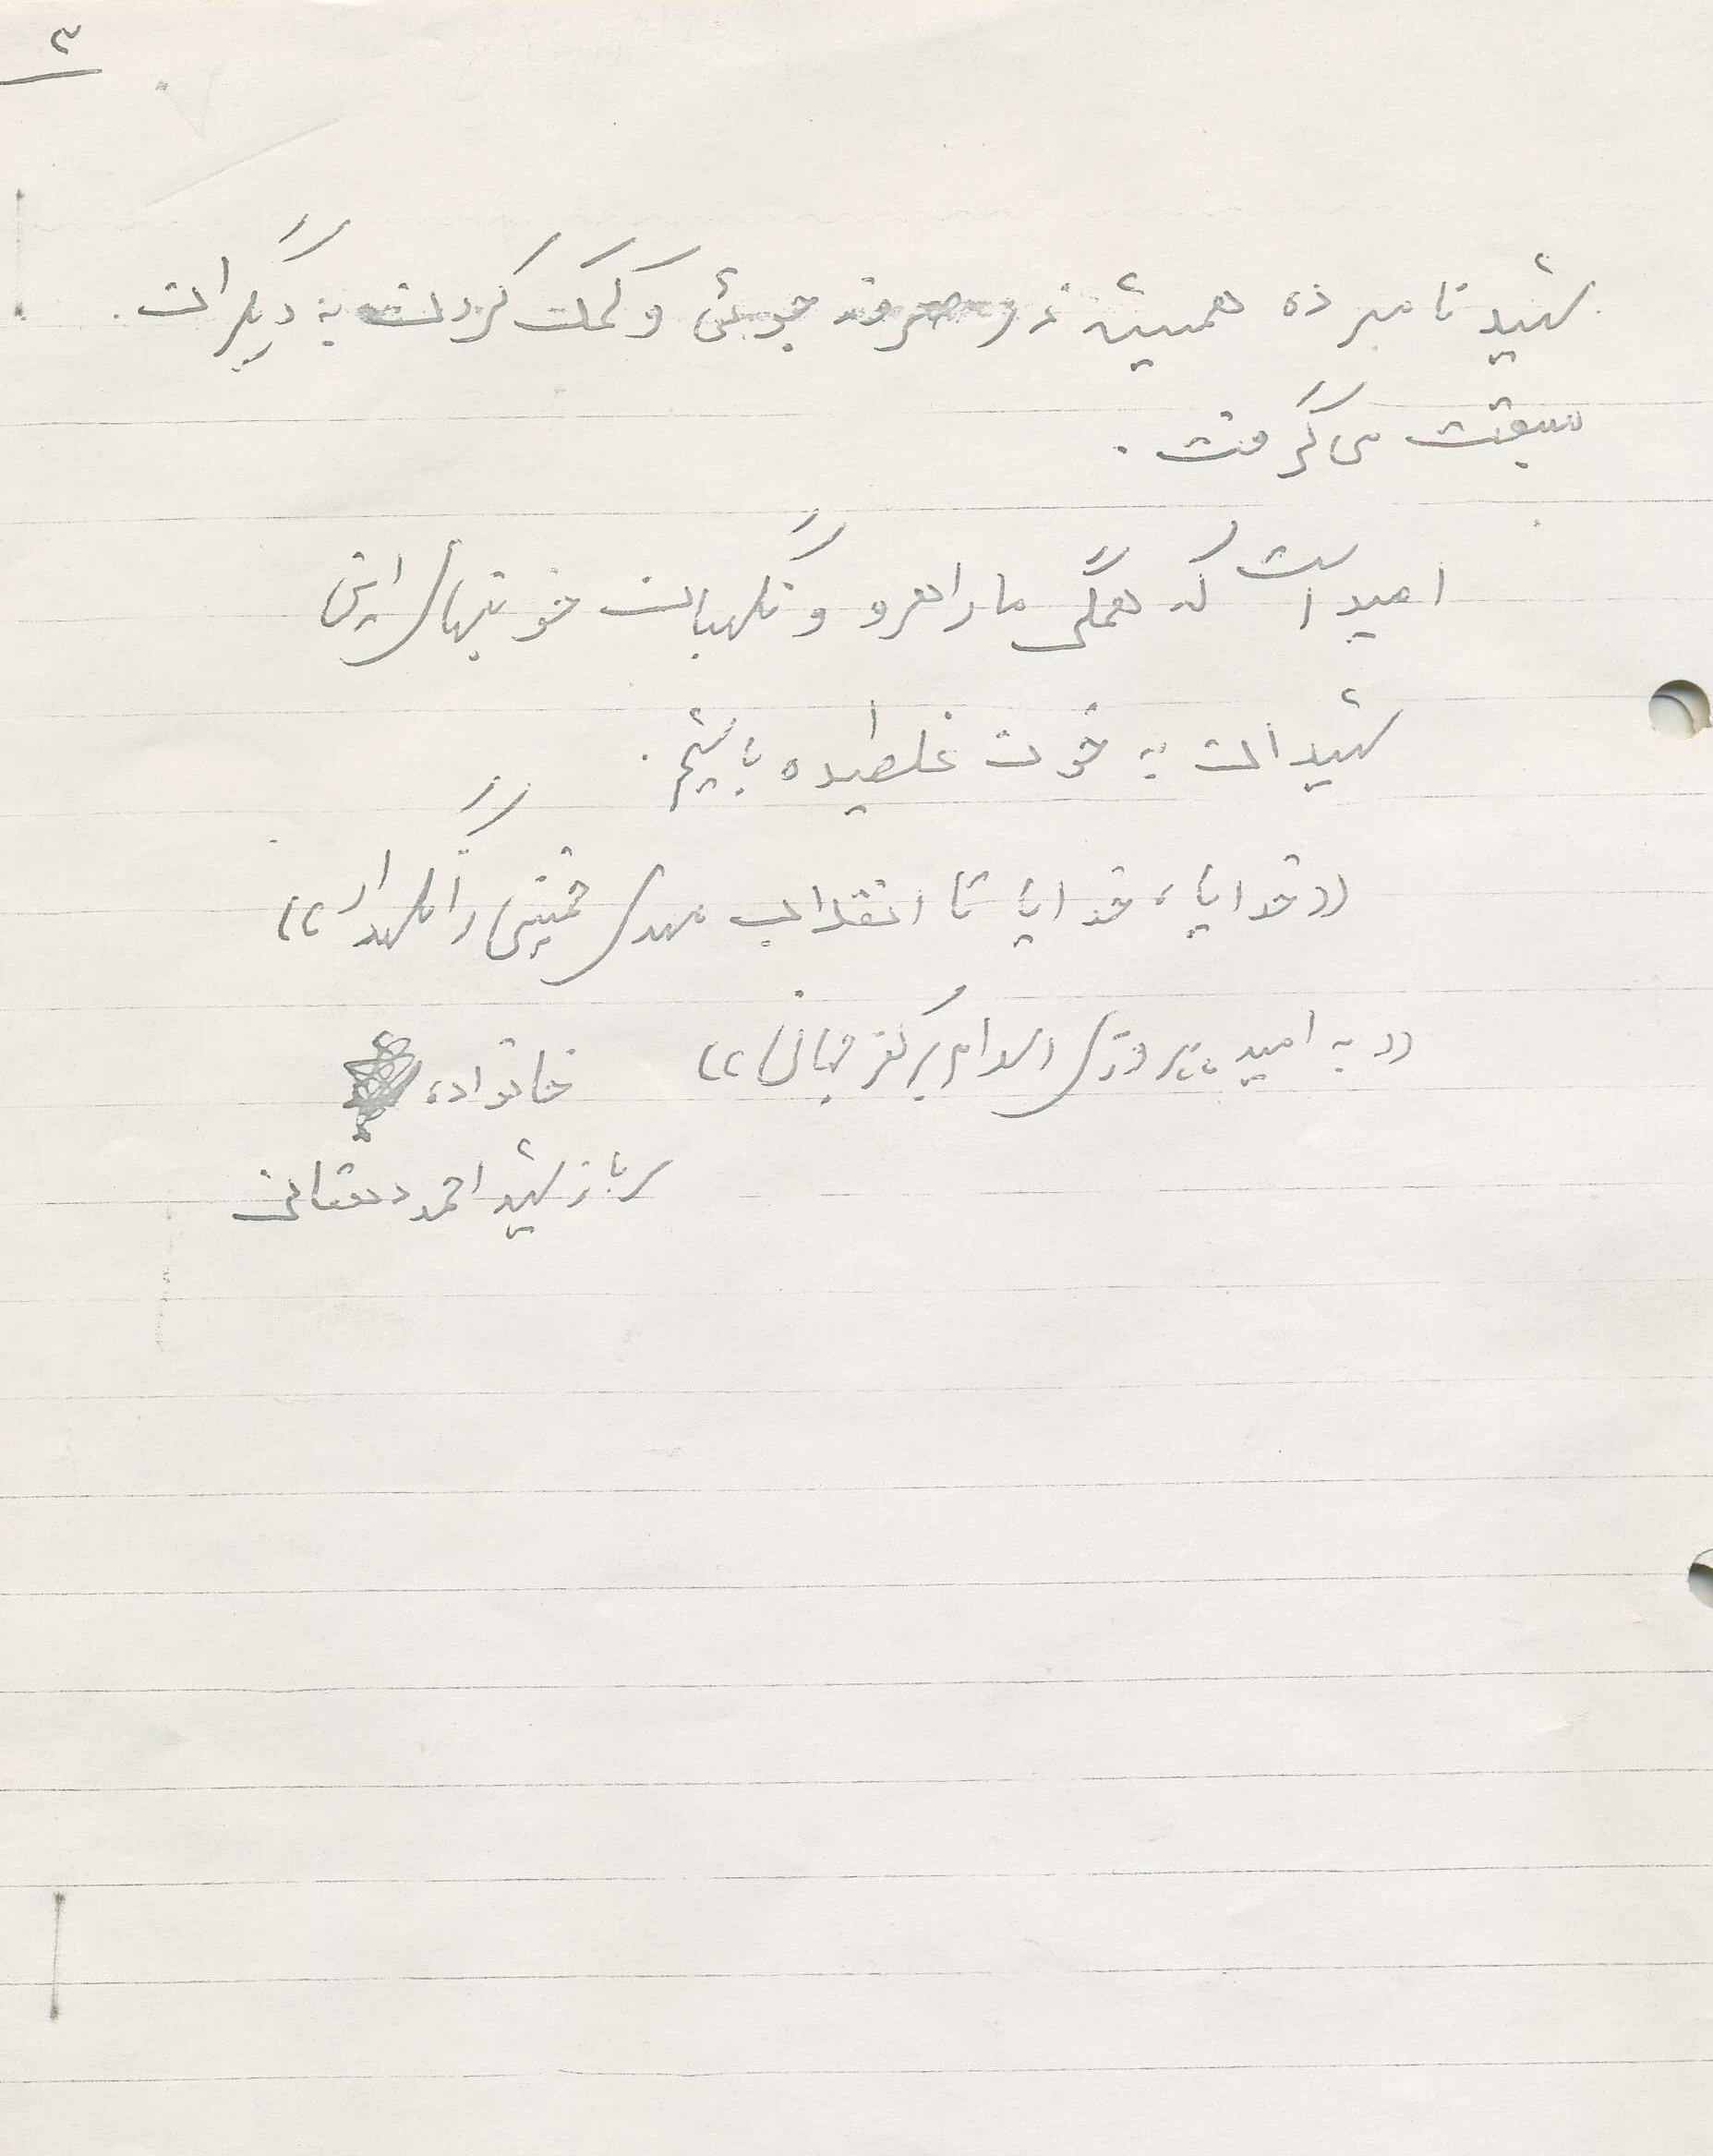 ۳
شهید نامبرده همیشه در صرفه جوئی و کمک کردن به دیگران
سبقت می گرفت .
امید است که همگی ما راهرو و نگهبان خونبهای این
شهیدان به خون غلطیده باشیم .
((خدایا، خدایا تا انقلاب مهدی خمینی را نگهدار))
((به امید پیروزی اسلام بر کفر جهانی)) خانواده
سرباز شهید احمد دهقانی